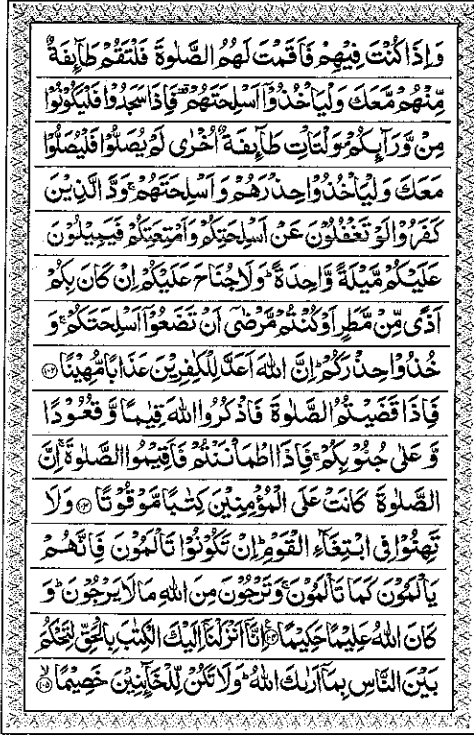 وَاِذَا كُنْتَ فِيْهِمْ فَاَقَمْتَ لَهُمُ الصَّلٰوةَ فَلْتَقُمْ طَآئِفَةٌ
مِّنْهُمْ مَّعَكَ وَلْيَاْخُذُوْٓا اَسْلِحَتَهُمْ ۫ فَاِذَا سَجَدُوْا فَلْيَكُوْنُوْا
مِنْ وَّرَآئِكُمْ ۪ وَلْتَاْتِ طَآئِفَةٌ اُخْرٰى لَمْ يُصَلُّوْا فَلْيُصَلُّوْا
مَعَكَ وَلْيَاْخُذُوْا حِذْرَهُمْ وَاَسْلِحَتَهُمْ ۚ وَدَّ الَّذِيْنَ
كَفَرُوْا لَوْ تَغْفُلُوْنَ عَنْ اَسْلِحَتِكُمْ وَاَمْتِعَتِكُمْ فَيَمِيْلُوْنَ
عَلَيْكُمْ مَّيْلَةً وَّاحِدَةً ؕ وَلَا جُنَاحَ عَلَيْكُمْ اِنْ كَانَ بِكُمْ
اَذًى مِّنْ مَّطَرٍ اَوْ كُنْتُمْ مَّرْضٰۤى اَنْ تَضَعُوْٓا اَسْلِحَتَكُمْ ۚ وَ
خُذُوْا حِذْرَكُمْ ؕ اِنَّ اللّٰهَ اَعَدَّ لِلْكٰفِرِيْنَ عَذَابًا مُّهِيْنًا ﴿۱۰۲﴾
فَاِذَا قَضَيْتُمُ الصَّلٰوةَ فَاذْكُرُوا اللّٰهَ قِيٰمًا وَّ قُعُوْدًا
وَّ عَلٰى جُنُوْبِكُمْ ۚ فَاِذَا اطْمَاْنَنْتُمْ فَاَقِيْمُوا الصَّلٰوةَ ۚ اِنَّ
الصَّلٰوةَ كَانَتْ عَلَى الْمُؤْمِنِيْنَ كِتٰبًا مَّوْقُوْتًا ﴿۱۰۳﴾ وَلَا
تَهِنُوْا فِى ابْتِغَآءِ الْقَوْمِ ؕ اِنْ تَكُوْنُوْا تَاْلَمُوْنَ فَاِنَّهُمْ
يَاْلَمُوْنَ كَمَا تَاْلَمُوْنَ ۚ وَتَرْجُوْنَ مِنَ اللّٰهِ مَا لَا يَرْجُوْنَ ؕ وَ
كَانَ اللّٰهُ عَلِيْمًا حَكِيْمًا ﴿۱۰۴﴾ اِنَّآ اَنْزَلْنَآ اِلَيْكَ الْكِتٰبَ بِالْحَقِّ لِتَحْكُمَ
بَيْنَ النَّاسِ بِمَآ اَرٰىكَ اللّٰهُ ؕ وَلَا تَكُنْ لِّلْخَآئِنِيْنَ خَصِيْمًا ﴿۱۰۵﴾